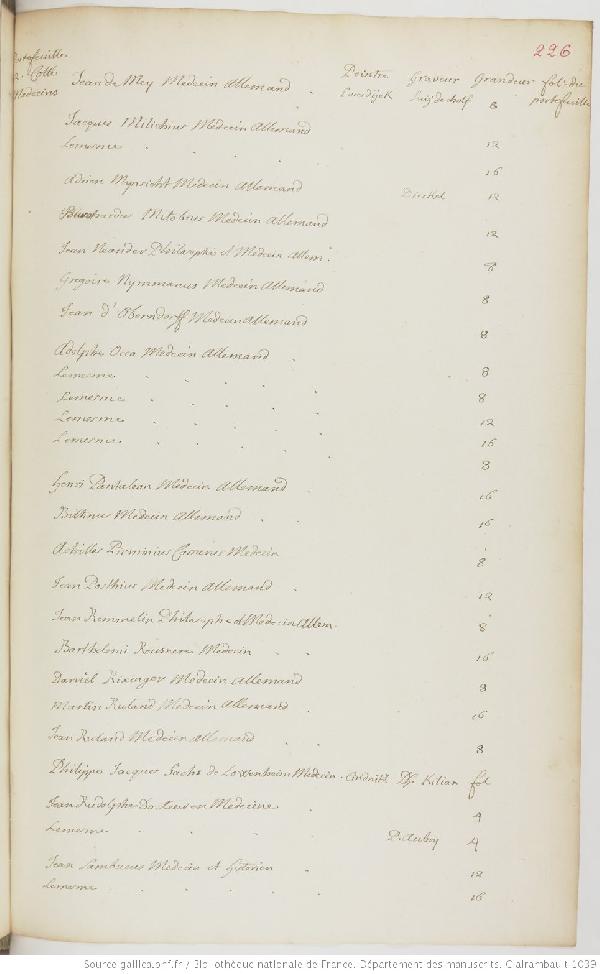 226
Portefeuille
Medecins
Peintre Graveur Grandeur fol. du
portefeuille
Jean de Mey Medecin Allemand 8
Jacques Milichius Medecin Allemand 12
Lemesme 16
Adrien Mynsicht Medecin Allemand Diricksen 12
Mitobius Medecin Allemand 12
Jean Neander Philosophe et Medecin Allem. 8
Gregoire Nymmanus Medecin Allemand 8
Jean d'Oberndorff Medecin Allemand 8
Adolphe Occa Medecin Allemand 8
Lemesme 8
Lemesme 12
Lemesme 16
Lemesme 8
Henri Pantaleon Medecin Allemand 16
Medecin Allemand 16
Achilles Pirminius Medecin 8
Jean Posthius Medecin Allemand 12
Jean Remmelin Philosophe et Medecin Allem. 8
Barthelemi Reusnere Medecin 16
Daniel Rixinger Medecin Allemand 8
Martin Ruland Medecin Allemand 16
Jean Ruland Medecin Allemand 8
Philippe Jacques Sachs de Medecin Ph. Kilian fol
Jean Rudolphe Medecine 4
Lemesme 4
Jean Sambucus Medecin et historien 12
Lemesme 16
Source gallica.bnf.fr / Bibliothèque nationale de France. Département des manuscrits. Clairambault 1039